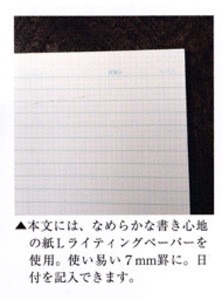 ▲本文には、なめらかな書き心地
の紙Lライティングペーパーを
使用。使い易い7mm罫に。日
付を記入できます。